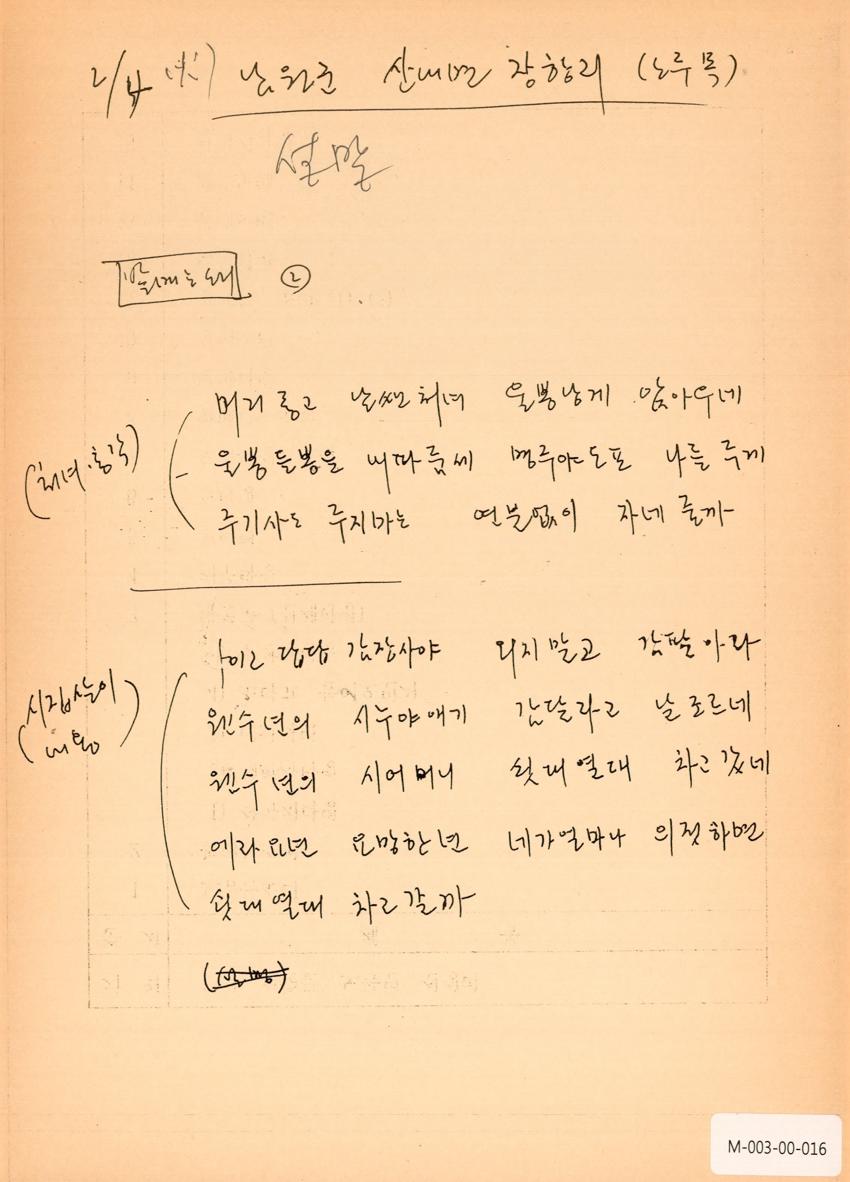 2/4 (火) 남원군 산내면 장항리 (노루목)
설말
밭매는소리 ②
머리롱고 날씬처녀 울뽕낭게 앉아우네
(처녀·총각) 울뽕들뽕을 내따줌세 명주야도포 나를주게
주기사도 주지마는 연분없이 자네줄까
아이고 답답 감장사야 외지말고 감팔아라
시집살이 웬수년의 시누야애기 감달라고 날조르네
(내용) 웬수년의 시어머니 쇳대열대 차고갔네
에라요년 요망한년 네가얼마나 의젓하면
쇳대열대 차고갈까
M-003-00-016